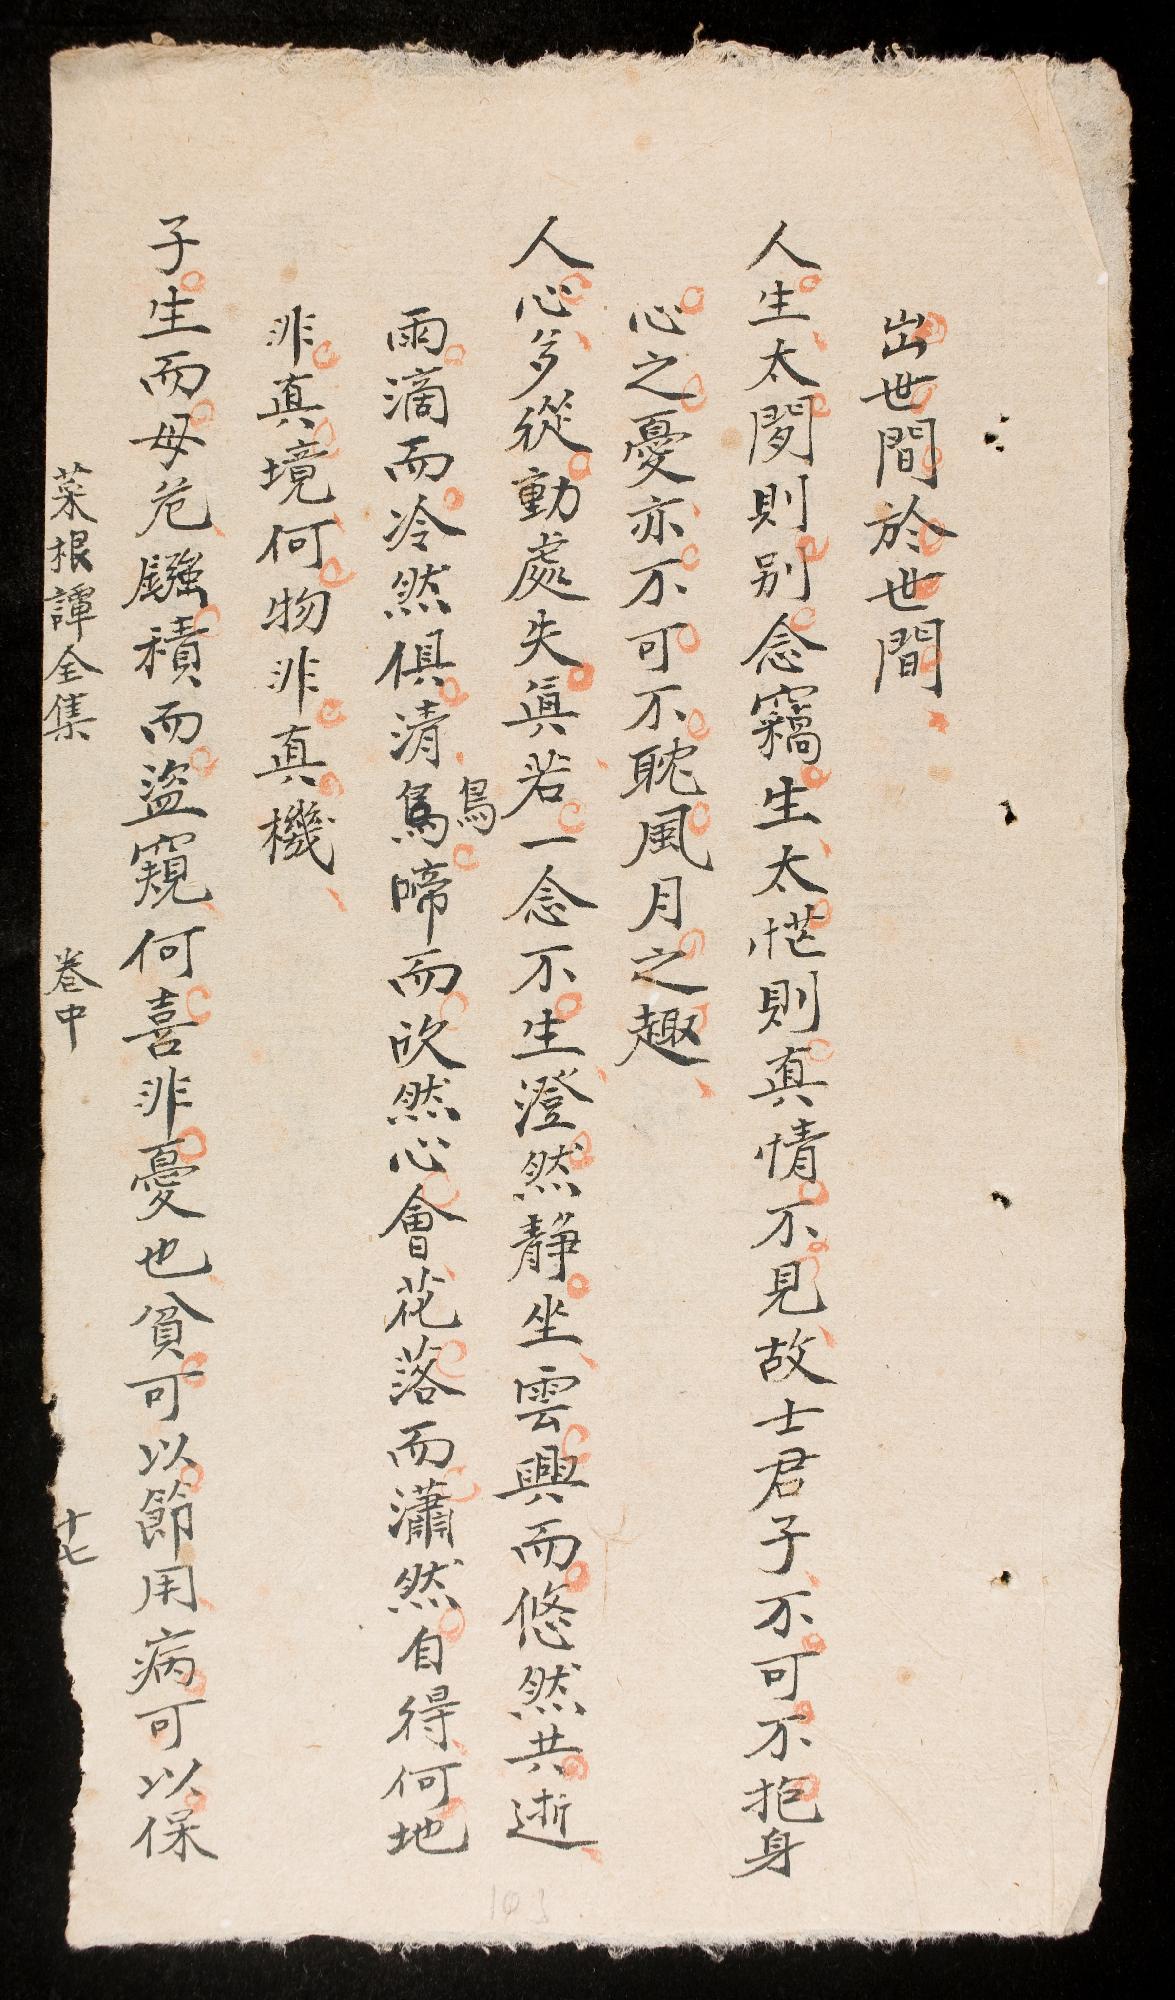 出世間於世間
人生太閒則別念竊生太忙則真情不見故士君子不可不抱身
心之憂亦不可不耽風月之趣
人心多從動處失眞若一念不生澄然靜坐雲興而悠然共逝
雨滴而冷然俱清鳥啼而欣然心會花落而瀟然自得何地
鳥
非真境何物非真機
子生而母危鏹積而盜窺何喜非憂也貧可以節用病可以保
菜根譚全集 卷中 十七
103